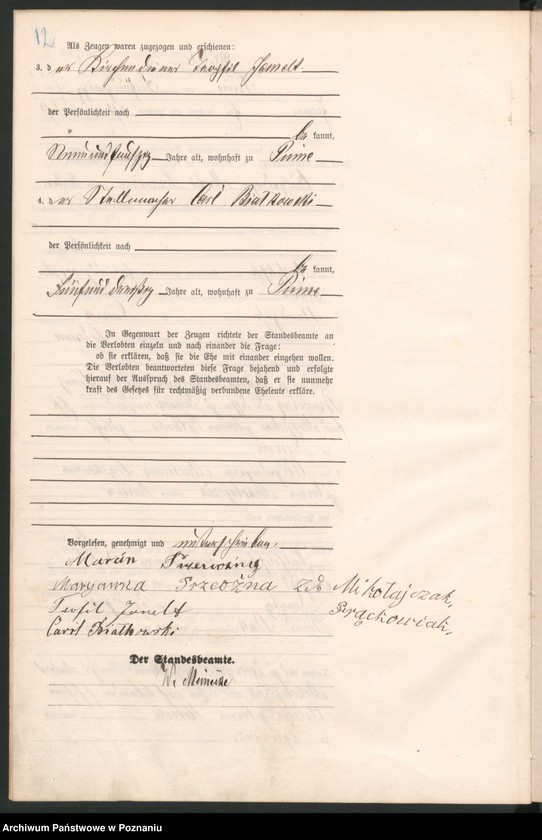 12
Als Zeugen waren zugezogen und erschienen:
3. der Kirchendiener Teophil Jemelt
der Persönlichkeit nach
be kannt,
Jahre alt, wohnhaft zu Pinne
4. der Stellmacher Carl Bialkowski
der Persönlichkeit nach
be kannt,
Fünfunddreißig Jahre alt, wohnhaft zu Pinne
In Gegenwart der Zeugen richtete der Standesbeamte an
die Verlobten einzeln und nach einander die Frage:
ob sie erklären, daß sie die Ehe mit einander eingehen wollen.
Die Verlobten beantworteten diese Frage bejahend und erfolgte
hierauf der Ausspruch des Standesbeamten, daß er sie nunmehr
kraft des Gesetzes für rechtmäßig verbundene Eheleute erkläre.
Vorgelesen, genehmigt und unterschrieben.
Marcin
Maryanna Przewoźna Mikołajczak,
Teofil Frąckowiak,
Carl Bialkowski
Der Standesbeamte.
W.
Archiwum Państwowe w Poznaniu